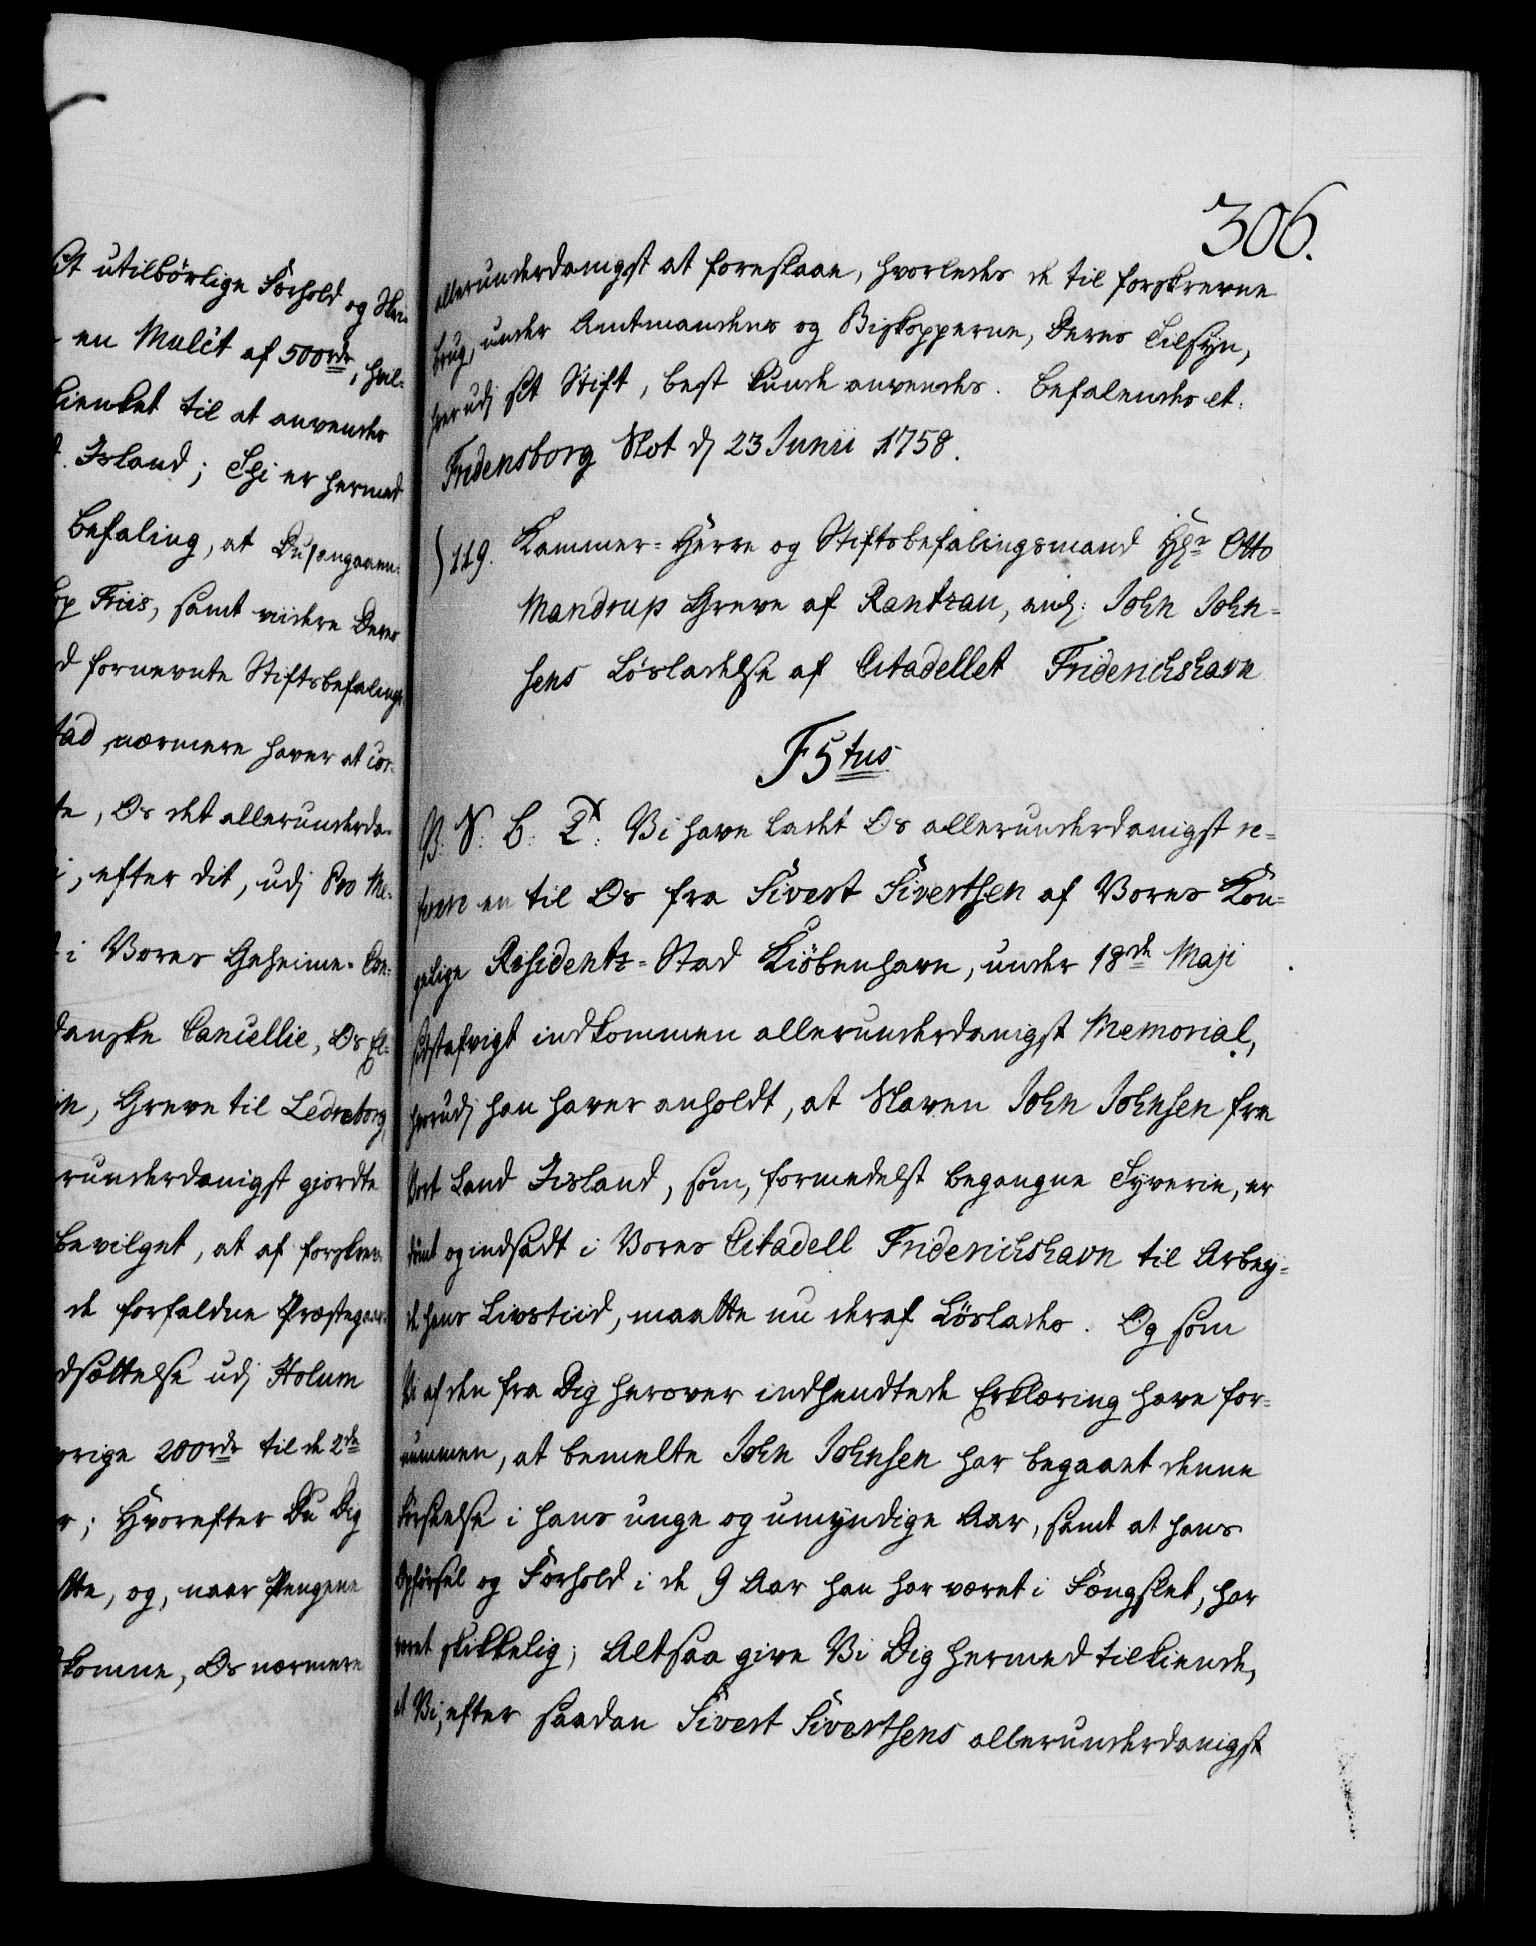 st utilbørlige Forhold og Skri-
en Mulct af 500 rdr, hvil-
kienket til at anvendes
Island; Thi er hermed
Befaling, at Du, angaaen-
Friis, samt viidere Deres
d fornevnte Stiftsbefalings
tad nærmere haver at cor-
te, Os det allerunderda-
i, efter dit, udj Pro Me-
i Vores Geheime-Con-
danske Cancellie, Os El-
in, Greve til Ledreborg,
runderdanigst giordte
bevilget, at af forskrev-
de forfaldne Præstegaar-
dsættelse udj Holum
vrige 200 rdr til de 2de
r; Hvorefter Du Dig
tte, og, naar Pengene
komne, Os nærmere
306.
allerunderdanigst at foreslaae, hvorledes de til forskrevne
brug, under Amtmandens og Biskopperne, Deres Tilsyn,
hver udj sit Stift, best kunde anvendes. Befalendes etc.
Fridensborg Slot dj 23 Junii 1758.
119. Kammer-Herre og Stiftsbefalingsmand Hr Otto
Mandrup Greve af Rantzau, anl: John John-
sens Løsladelse af Citadellet Friderichshavn
F5tus
V. S. G. T. Vi have ladet Os allerunderdanigst re-
ferere en til Os fra Sivert Sivertsen af Vores Kon-
gelige Residentz-Stad Kiöbenhavn, under 18de Maji
sidstafvigt indkommen allerunderdanigst Memorial,
hvorudj han haver anholdt, at Slaven John Johnsen fra
Vort Land Island, som, formedelst begangne Tyverie, er
dömt og indsadt i Vores Citadell Friderichshavn til Arbey-
de hans Livstiid, maatte nu deraf Löslades. Og som
Vi af den fra Dig herover indhendtede Erklæring have for-
nummen, at bemelte John Johnsen har begaaet denne
Forseelse i hans unge og umyndige Aar, samt at hans
Opførsel og Forhold i de 9 Aar han har været i Fængslet, har
veret skikkelig; Altsaa give Vi Dig hermed tilkiende,
at Vi, efter saadan Sivert Sivertsens allerunderdanigst